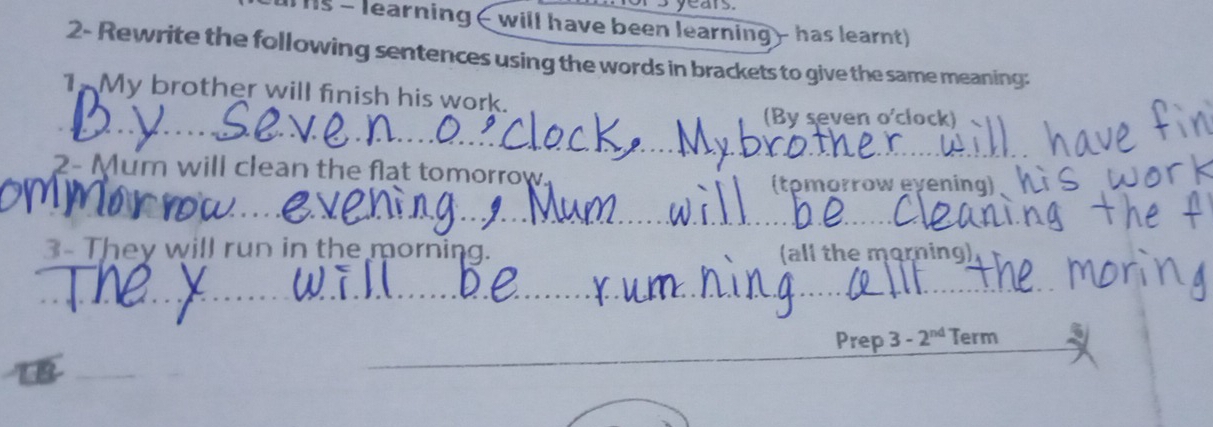 learning - will have been learning - has learnt)
2- Rewrite the following sentences using the words in brackets to give the same meaning:
1- My brother will finish his work. (By seven o'clock)
By seven o'clock, My brother will have fin
his work
2- Mum will clean the flat tomorrow. (tomorrow evening)
ommorrow evening, Mum will be cleaning the f
3- They will run in the morning. (all the morning)
They will be rumning alll the moring
Prep 3 - 2nd Term